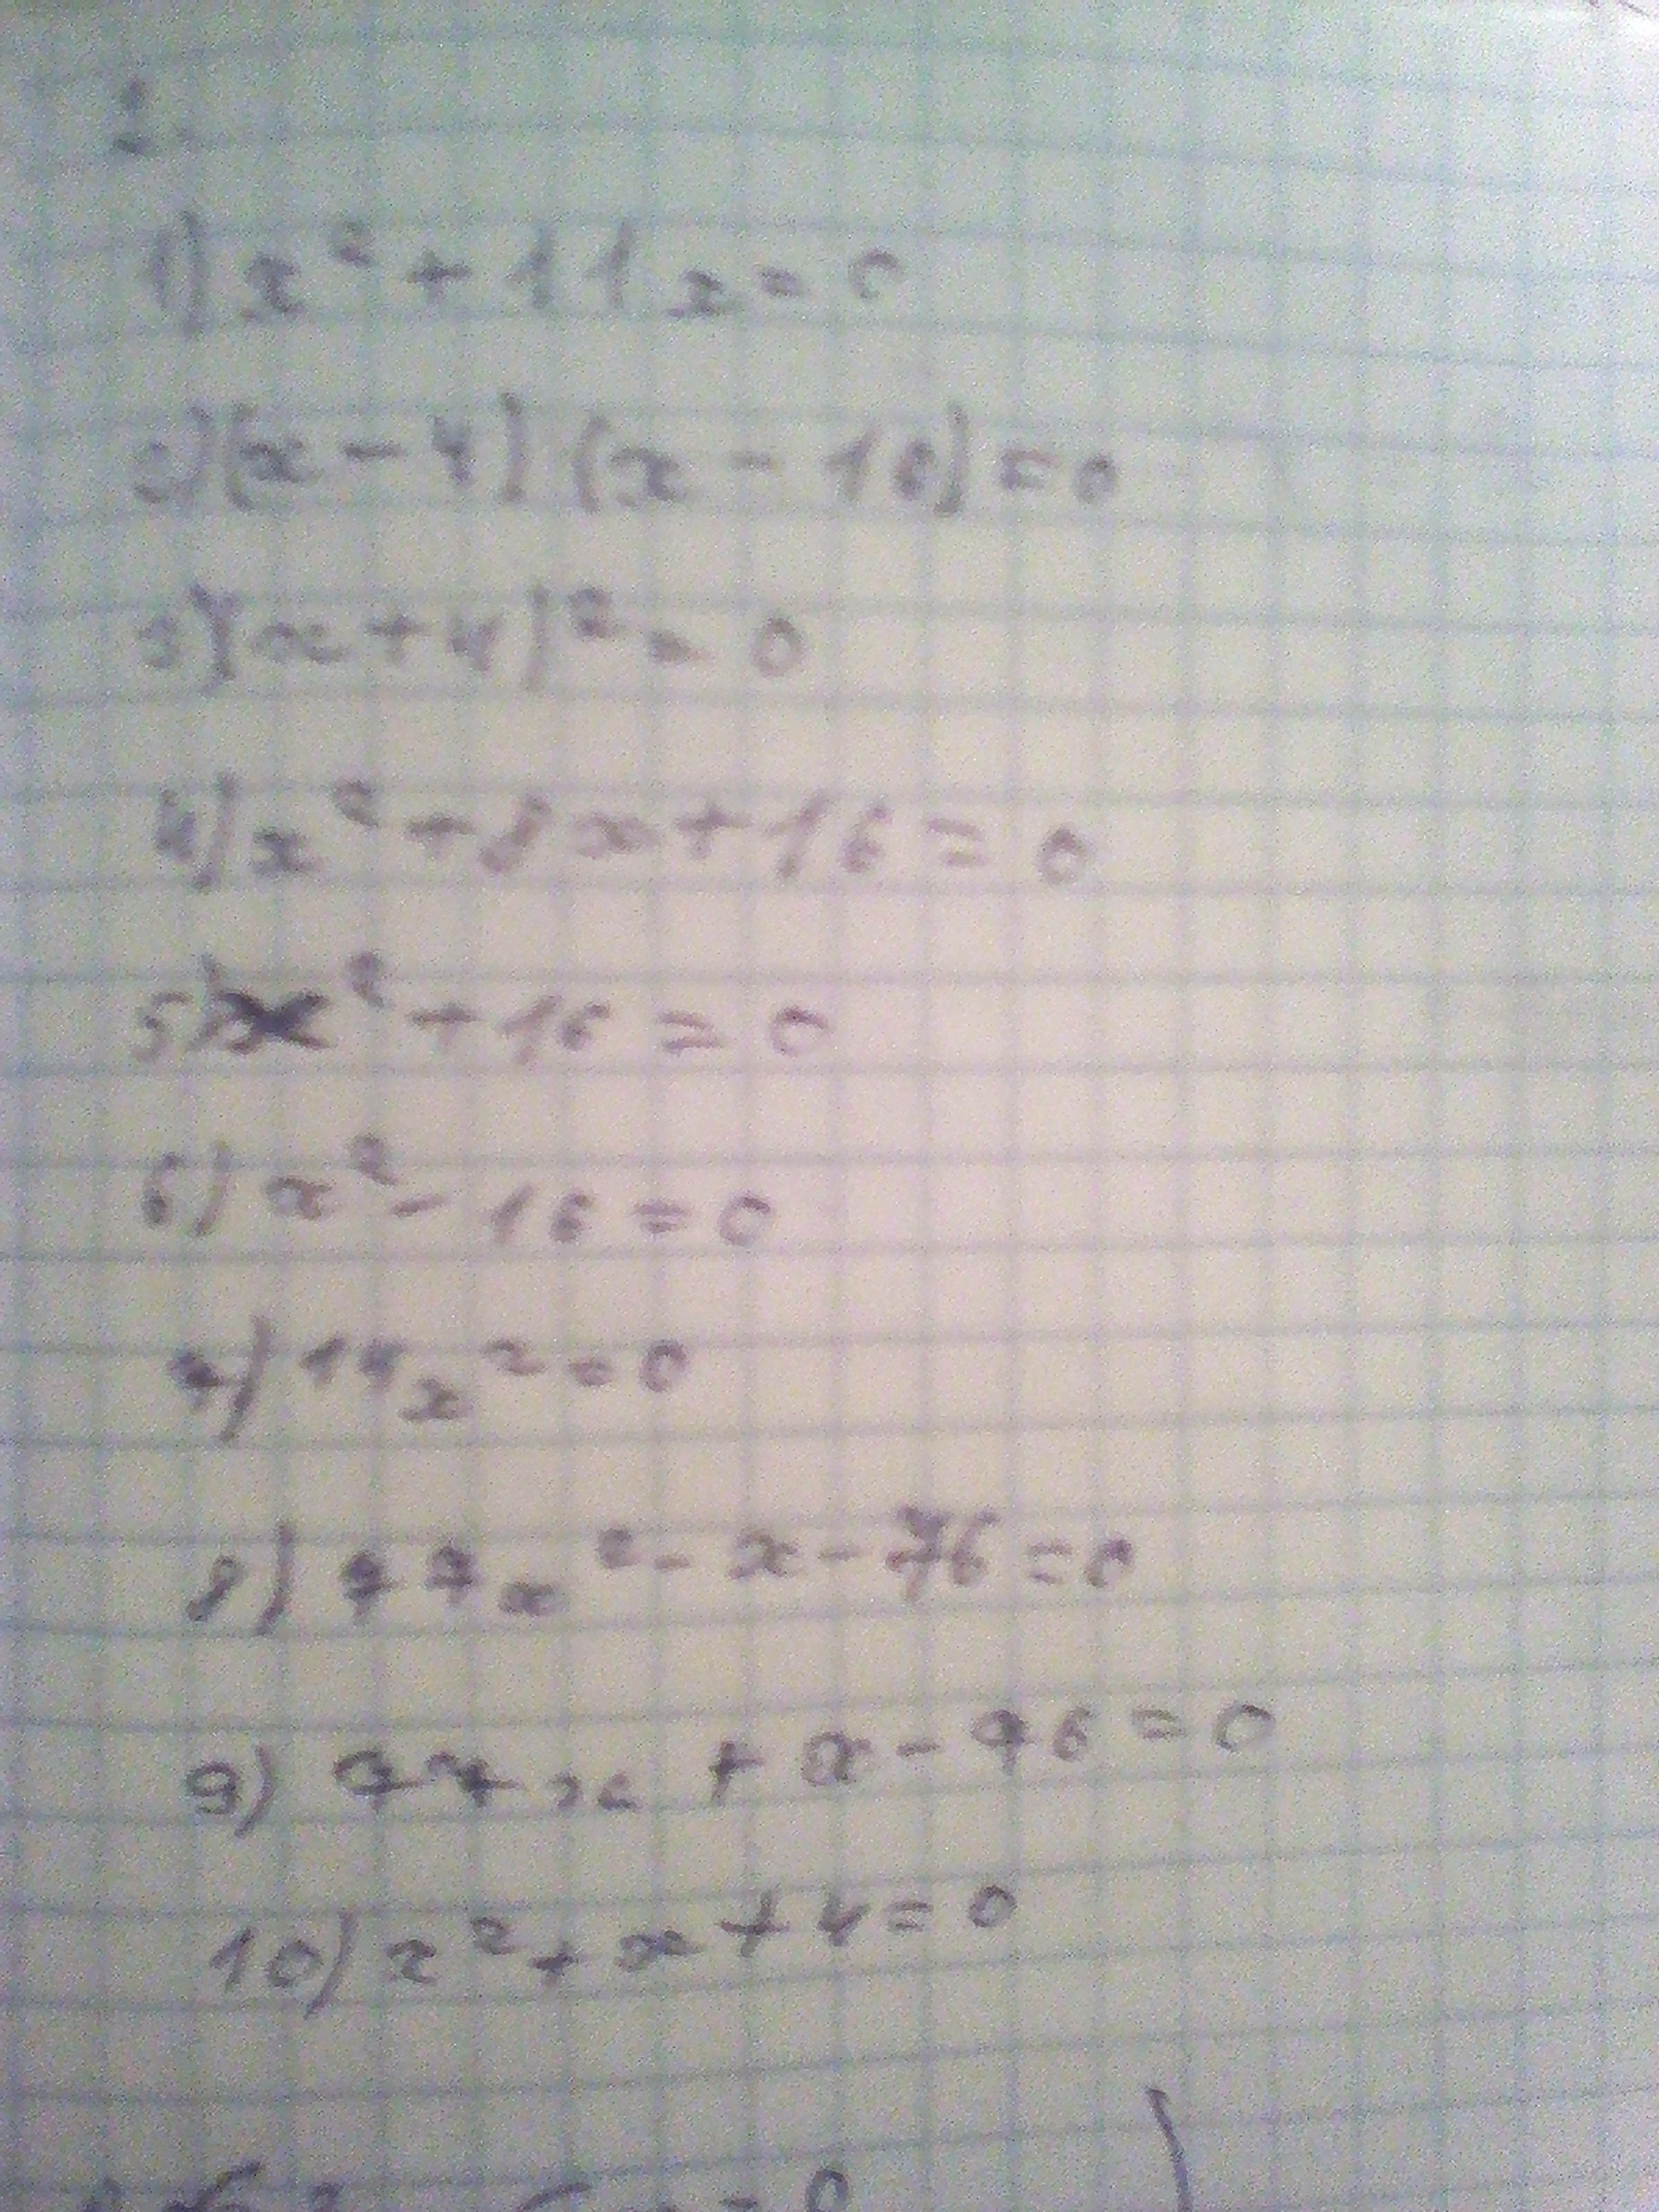 2.
1) x² + 11x = 0
2) (x - 4) (x - 16) = 0
3) (x + 4)² = 0
4) x² + 8x + 16 = 0
5) x² + 16 = 0
6) x² - 16 = 0
7) 14x² = 0
8) 77x² - x - 76 = 0
9) 77x + x - 76 = 0
10) x² + x + 4 = 0